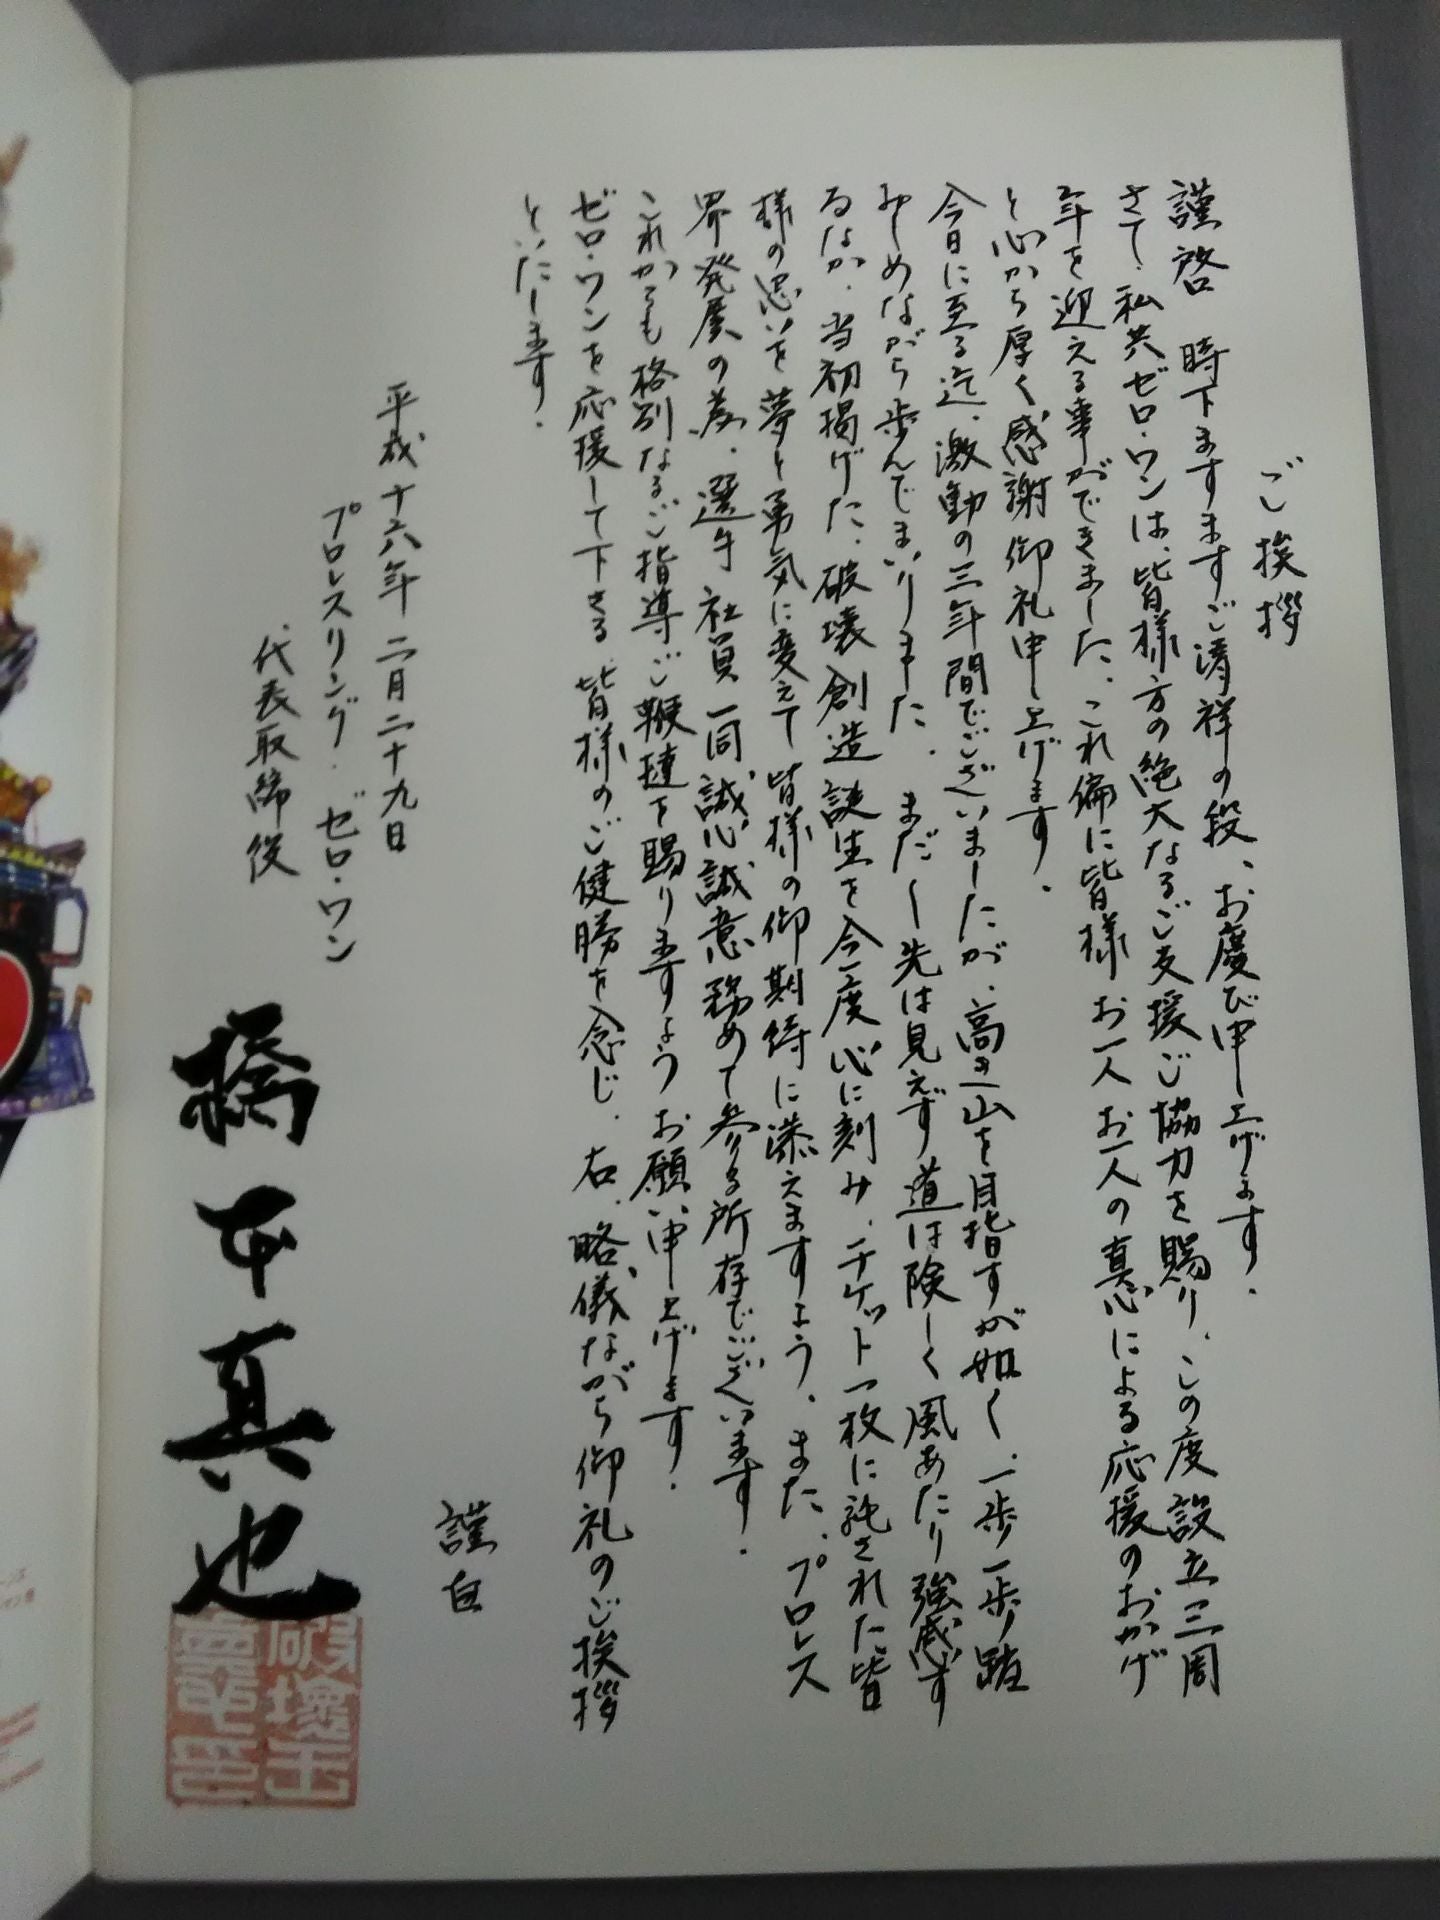 ご挨拶
謹啓 時下ますますご清祥の段、お慶び申し上げます。
さて、私共ゼロ・ワンは、皆様方の絶大なるご支援ご協力を賜り、この度設立三周
年を迎える事ができました。これ偏に皆様お一人お一人の真心による応援のおかげ
と心から厚く感謝御礼申し上げます。
今日に至る迄、激動の三年間でございましたが、高き山を目指すが如く、一歩一歩踏
みしめながら歩んでまいりました。まだまだ先は見えず道は険しく風あたり強く感ず
るなか、当初掲げた、破壊創造誕生を今一度心に刻み、チケット一枚に託された皆
様の思いを夢と勇気に変えて皆様の御期待に添えますよう、また、プロレス
界発展の為、選手社員一同誠心誠意務めて参る所存でございます。
これからも格別なるご指導ご鞭撻を賜りますようお願い申し上げます。
ゼロ・ワンを応援して下さる皆様のご健勝を念じ、右、略儀ながら御礼のご挨拶
といたします。
謹白
平成十六年二月二十九日
プロレスリング・ゼロ・ワン
代表取締役
橋本真也
破壊王